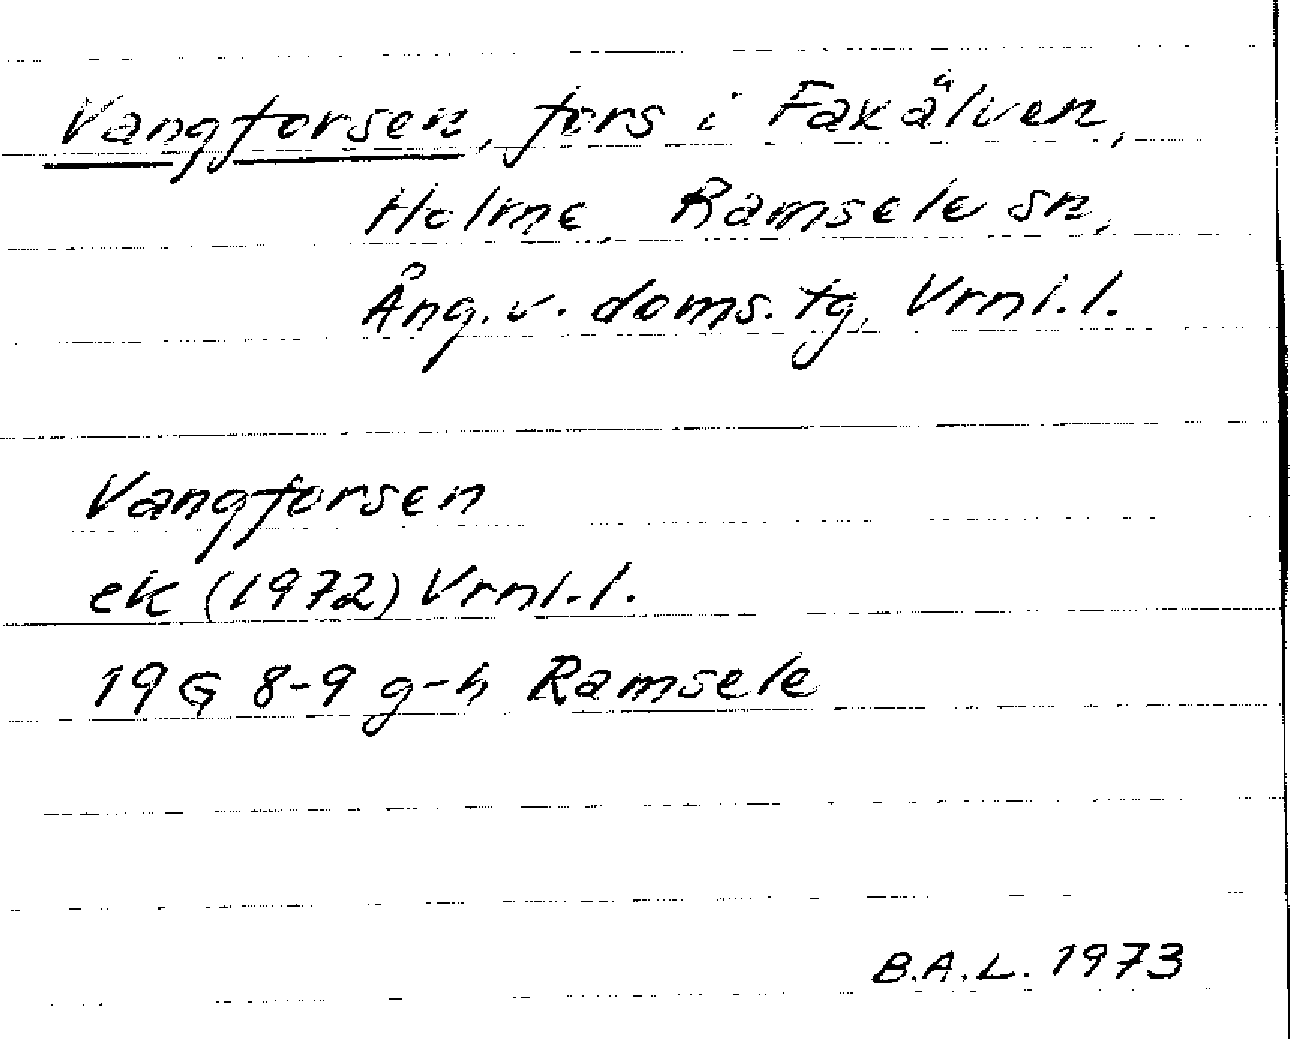 Vangforsen, fors i Faxälven,
Holme, Ramsele sn,
Ång. v. doms. tg, Vrnl. l.
Vangforsen
ek (1972) Vrnl. l.
19 G 8-9 g-h Ramsele
B.A.L. 1973